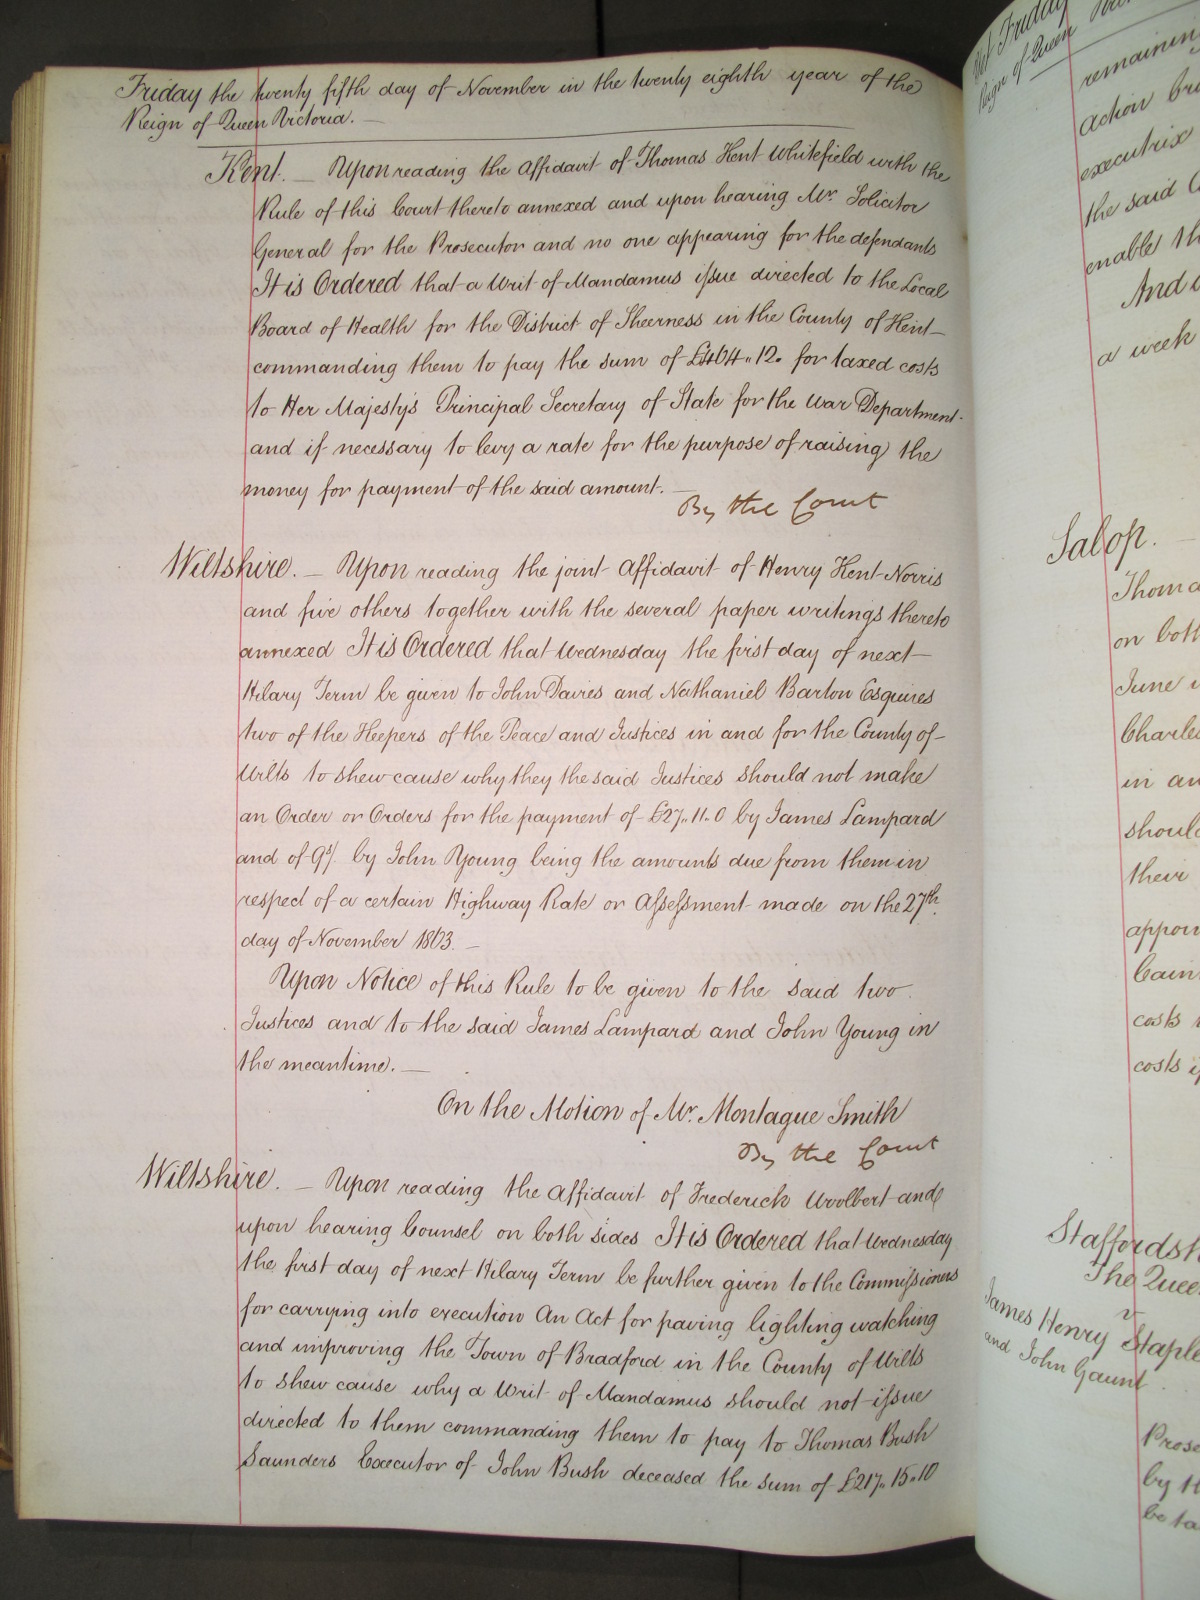 Friday the twenty fifth day of November in the twenty eighth year of the
Reign of Queen Victoria. —
Kent. — Upon reading the Affidavit of Thomas Kent Whitefield with the
Rule of this Court thereto annexed and upon hearing Mr. Solicitor
General for the Prosecutor and no one appearing for the defendants
It is Ordered that a Writ of Mandamus issue directed to the Local
Board of Health for the District of Sheerness in the County of Kent —
commanding them to pay the sum of £464.. 12. for taxed costs
to Her Majesty's Principal Secretary of State for the War Department
and if necessary to levy a rate for the purpose of raising the
money for payment of the said amount. —
By the Court
Wiltshire. — Upon reading the joint Affidavit of Henry Kent Norris
and five others together with the several paper writings thereto
annexed It is Ordered that Wednesday the first day of next —
Hilary Term be given to John Davies and Nathaniel Barton Esquires
two of the Keepers of the Peace and Justices in and for the County of —
Wilts to shew cause why they the said Justices should not make
an Order or Orders for the payment of £27.. 11. 0 by James Lampard
and of 9s/. by John Young being the amounts due from them in
respect of a certain Highway Rate or Assessment made on the 27th.
day of November 1863. —
Upon Notice of this Rule to be given to the said two
Justices and to the said James Lampard and John Young in
the meantime. —
On the Motion of Mr. Montague Smith
By the Court
Wiltshire. — Upon reading the Affidavit of Frederick Woolbert and
upon hearing Counsel on both sides It is Ordered that Wednesday
the first day of next Hilary Term be further given to the Commissioners
for carrying into execution An Act for paving lighting watching
and improving the Town of Bradford in the County of Wilts
to shew cause why a Writ of Mandamus should not issue
directed to them commanding them to pay to Thomas Bush
Saunders Executor of John Bush deceased the sum of £217.. 15.. 10
Friday
Reign of Queen
remaining
action
executrix
the said
enable
And
a week
Salop. —
on both
June
Charles
in
should
their
costs
costs
Staffordsh
The Queen
v
James Henry Staple
and John Gaunt
by